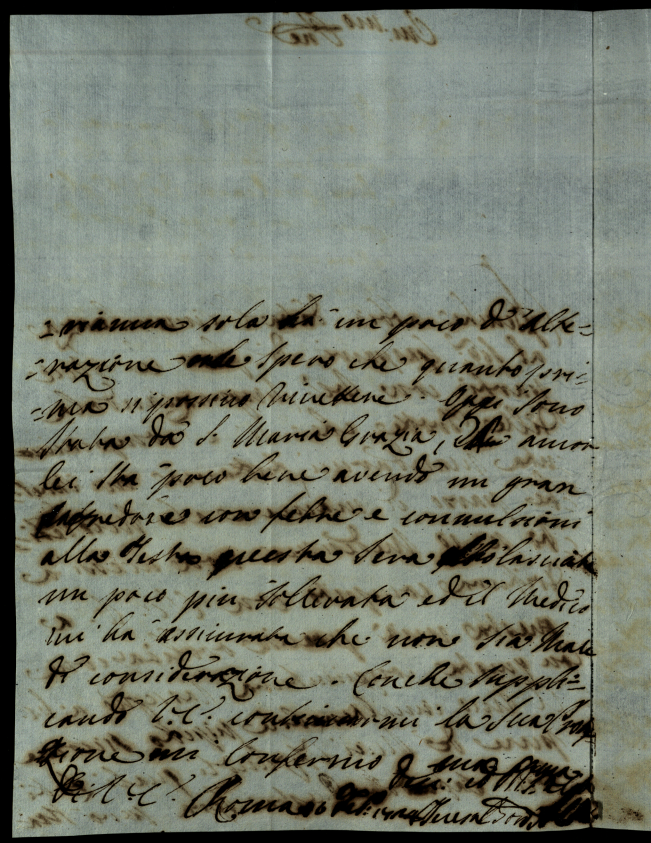 =rianna sola ha un poco d'alte=
=razione onde spero che quanto pri=
=ma si possino rimettere. Oggi sono
stata da S. Maria Grazia, che ancor
lei sta poco bene avendo un gran
rafredore con febre e convulsioni
alla testa questa sera l'ho lasciata
un poco più sollevata ed il Medico
mi ha assicurata che non sia male
di considerazione. Con che suppli=
cando V.E. continuarmi la sua Prote
zione mi confermo
Di V.E.
Roma 16
Teresa